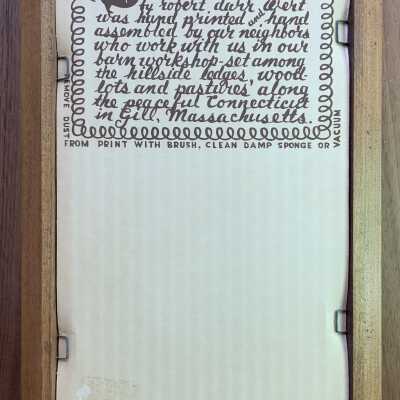 by robert darr wert
was hand printed and hand
assembled by our neighbors
who work with us in our
barn workshop-set among
the hillside ledges, wood-
lots and pastures along
the peaceful Connecticut
in Gill, Massachusetts.
REMOVE DUST
FROM PRINT WITH BRUSH, CLEAN DAMP SPONGE OR
VACUUM